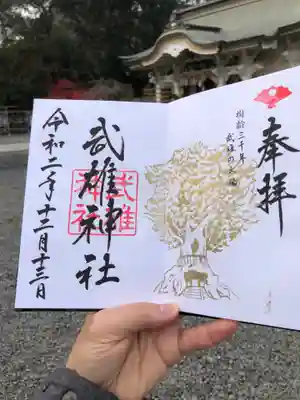 奉拝
樹齢三千年
武雄の大楠
武雄神社
武雄神社
令和二年十二月十三日